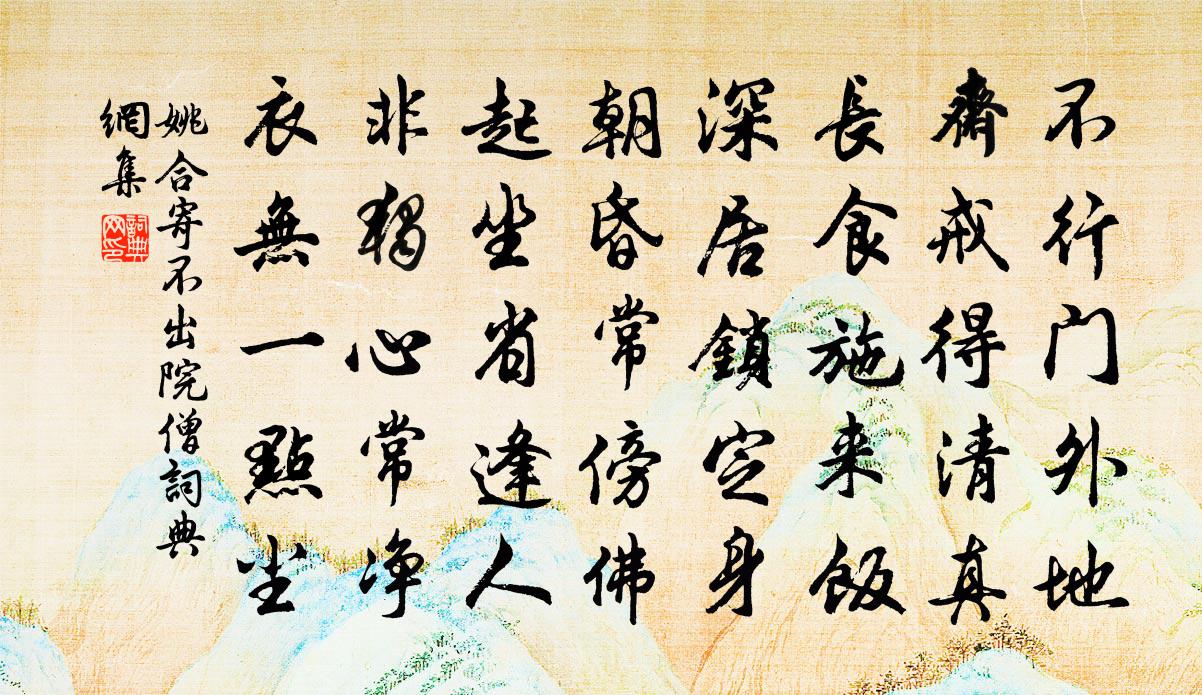 不行门外地
齋戒得清真
長食施来飯
深居鎖定身
朝昏常傍佛
起坐省逢人
非獨心常净
衣無一點尘
姚合寄不出院僧詞典
網集
詞典
网印